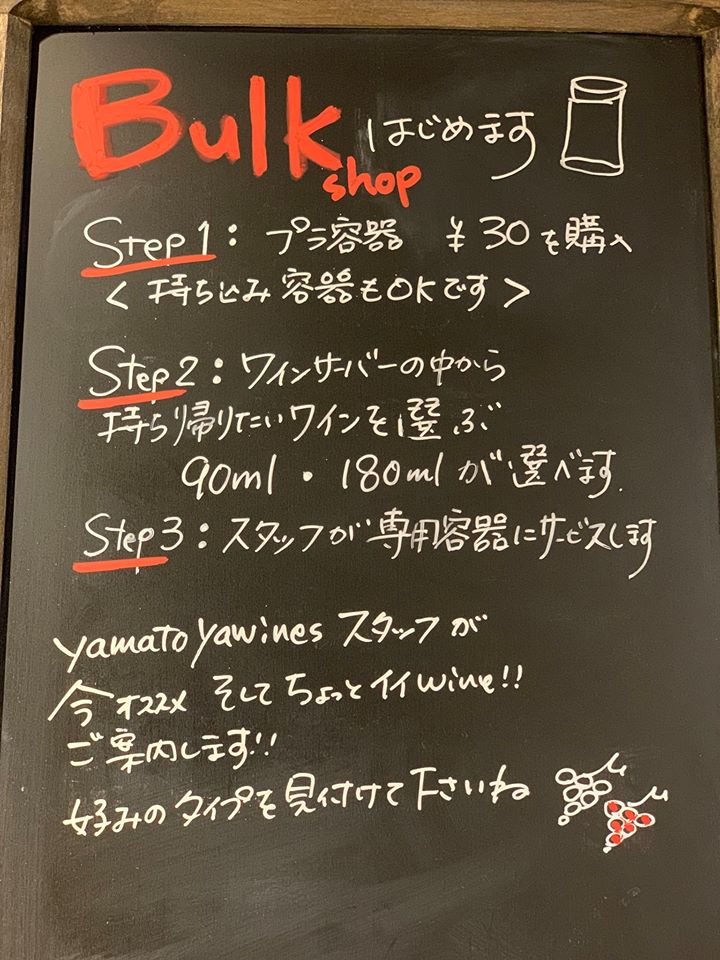 Bulk shop はじめます
Step1: プラ容器 ¥30を購入
<持ち込み容器もOKです>
Step2: ワインサーバーの中から
持ち帰りたいワインを選ぶ
90ml・180mlが選べます.
Step3: スタッフが専用容器にサービスします
yamatoyawines スタッフが
今オススメ そしてちょっとイイwine!!
ご案内します!!
好みのタイプを見付けて下さいね